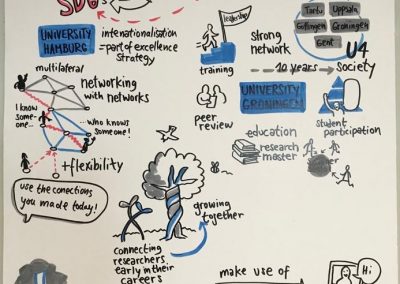 SDGs
UNIVERSITY
HAMBURG
internationalisation
= part of excellence
strategy
leadership
training
strong
network
Tartu
Uppsala
Göttingen
Groningen
Gent
U4
10 years
society
multilateral
networking
with networks
I know
some-
one...
...who knows
someone!
+flexibility
use the conections
you made today!
peer
review
UNIVERSITY
GRONINGEN
education
research
master
student
participation
growing
together
connecting
researchers
early in their
careers
make use of
Hi